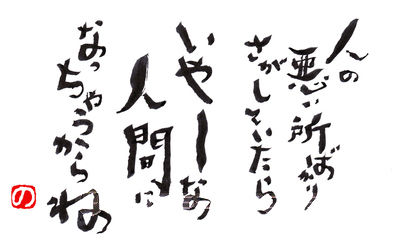 人の
悪い所ばかり
さがしていたら
いやーな
人間に
なっちゃうからね
の